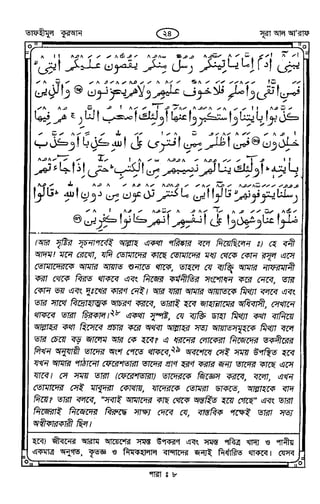 তাফহীমুল কুরআন
২৪
সূরা আল আ'রাফ
يٰبَنِىْٓ اٰدَمَ اِمَّا يَاْتِيَنَّكُمْ رُسُلٌ مِّنْكُمْ يَقُصُّوْنَ عَلَيْكُمْ اٰيٰتِىْ ۙ
فَمَنِ اتَّقٰى وَاَصْلَحَ فَلَا خَوْفٌ عَلَيْهِمْ وَلَا هُمْ يَحْزَنُوْنَ ﴿٣٥﴾ وَالَّذِيْنَ
كَذَّبُوْا بِاٰيٰتِنَا وَاسْتَكْبَرُوْا عَنْهَآ اُولٰٓئِكَ اَصْحٰبُ النَّارِ ۚ هُمْ فِيْهَا
خٰلِدُوْنَ ﴿٣٦﴾ فَمَنْ اَظْلَمُ مِمَّنِ افْتَرٰى عَلَى اللّٰهِ كَذِبًا اَوْ كَذَّبَ
بِاٰيٰتِهٖ ؕ اُولٰٓئِكَ يَنَالُهُمْ نَصِيْبُهُمْ مِّنَ الْكِتٰبِ ؕ حَتّٰٓى اِذَا جَآءَتْهُمْ
رُسُلُنَا يَتَوَفَّوْنَهُمْ ۙ قَالُوْٓا اَيْنَ مَا كُنْتُمْ تَدْعُوْنَ مِنْ دُوْنِ اللّٰهِ ؕ قَالُوْا
ضَلُّوْا عَنَّا وَشَهِدُوْا عَلٰٓى اَنْفُسِهِمْ اَنَّهُمْ كَانُوْا كٰفِرِيْنَ ﴿٣٧﴾
(আর সৃষ্টির সূচনাপর্বেই আল্লাহ একথা পরিষ্কার বলে দিয়েছিলেন ঃ) হে বনী
আদম! মনে রেখো, যদি তোমাদের কাছে তোমাদের মধ্য থেকে কোন রসূল এসে
তোমাদেরকে আমার আয়াত শুনাতে থাকে, তাহলে যে ব্যক্তি আমার নাফরমানী
করা থেকে বিরত থাকবে এবং নিজের কর্মনীতির সংশোধন করে নেবে, তার
কোন ভয় এবং দুঃখের কারণ নেই। আর যারা আমার আয়াতকে মিথ্যা বলবে এবং
তার সাথে বিদ্রোহাত্মক আচরণ করবে, তারাই হবে জাহান্নামের অধিবাসী, সেখানে
থাকবে তারা চিরকাল।২৮ একথা সুস্পষ্ট, যে ব্যক্তি ডাহা মিথ্যা কথা বানিয়ে
আল্লাহর কথা হিসেবে প্রচার করে অথবা আল্লাহর সত্য আয়াতসমূহকে মিথ্যে বলে
তার চেয়ে বড় জালেম আর কে হবে। এ ধরনের লোকেরা নিজেদের তকদীরের
লিখন অনুযায়ী তাদের অংশ পেতে থাকবে,২৯ অবশেষে সেই সময় উপস্থিত হবে
যখন আমার পাঠানো ফেরেশতারা তাদের প্রাণ হরণ করার জন্য তাদের কাছে এসে
যাবে। সে সময় তারা (ফেরেশতারা) তাদেরকে জিজ্ঞেস করবে, বলো, এখন
তোমাদের সেই মাবুদরা কোথায়, যাদেরকে তোমরা ডাকতে, আল্লাহকে বাদ
দিয়ে। তারা বলবে, "সবাই আমাদের কাছ থেকে অন্তর্হিত হয়ে গেছে" এবং তারা
নিজেরাই নিজেদের বিরুদ্ধে সাক্ষ্য দেবে যে, বাস্তবিক পক্ষেই তারা সত্য
অস্বীকারকারী ছিল।
হবে। জীবনের আরাম আয়েশের সমস্ত উপকরণ এবং সমস্ত পবিত্র খাদ্য ও পানীয়
একমাত্র অনুগত, কৃতজ্ঞ ও নিমকহালাল বান্দাদের জন্যই নির্ধারিত থাকবে। যেসব
পারা ঃ ৮